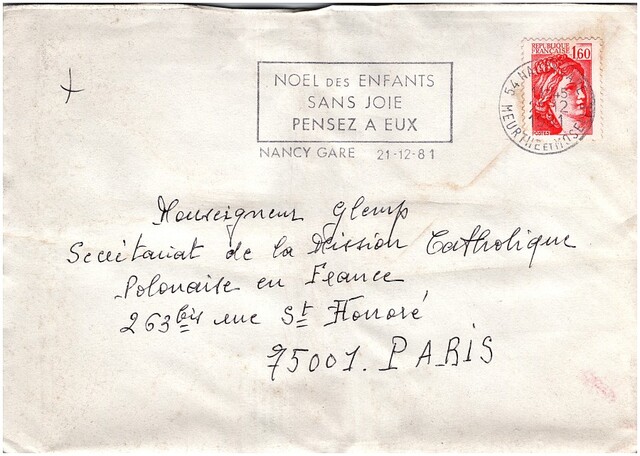 REPUBLIQUE
FRANÇAISE 1,60
NOEL DES ENFANTS
SANS JOIE
PENSEZ A EUX
NANCY GARE 21-12-81
54 NANCY
MEURTHE ET MOSELLE
Monseigneur Glemp
Secrétariat de la Mission Catholique
Polonaise en France
263 bis rue St Honoré
75001. PARIS